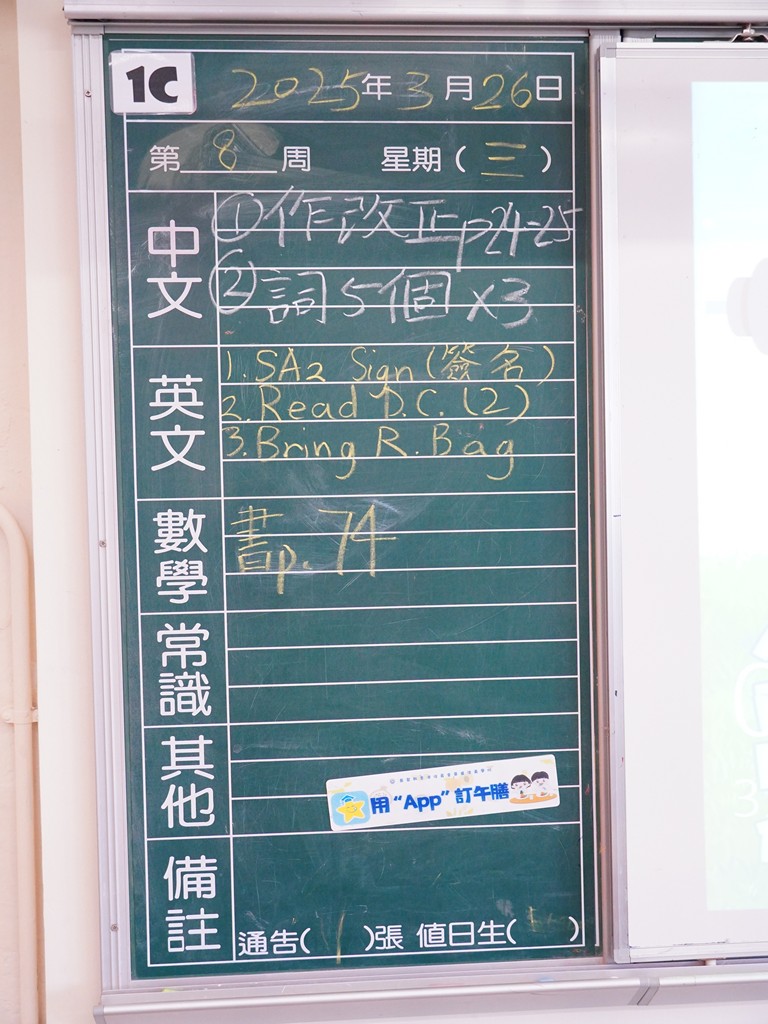 1C
2025年3月26日
第8周 星期(三)
中文
①作改正p24-25
②詞5個x3
英文
1. SA2 Sign(簽名)
2. Read D.C. (2)
3. Bring R. Bag
數學
書p.74
常識
其他
用“App”訂午膳
備註
通告(1)張 值日生( )